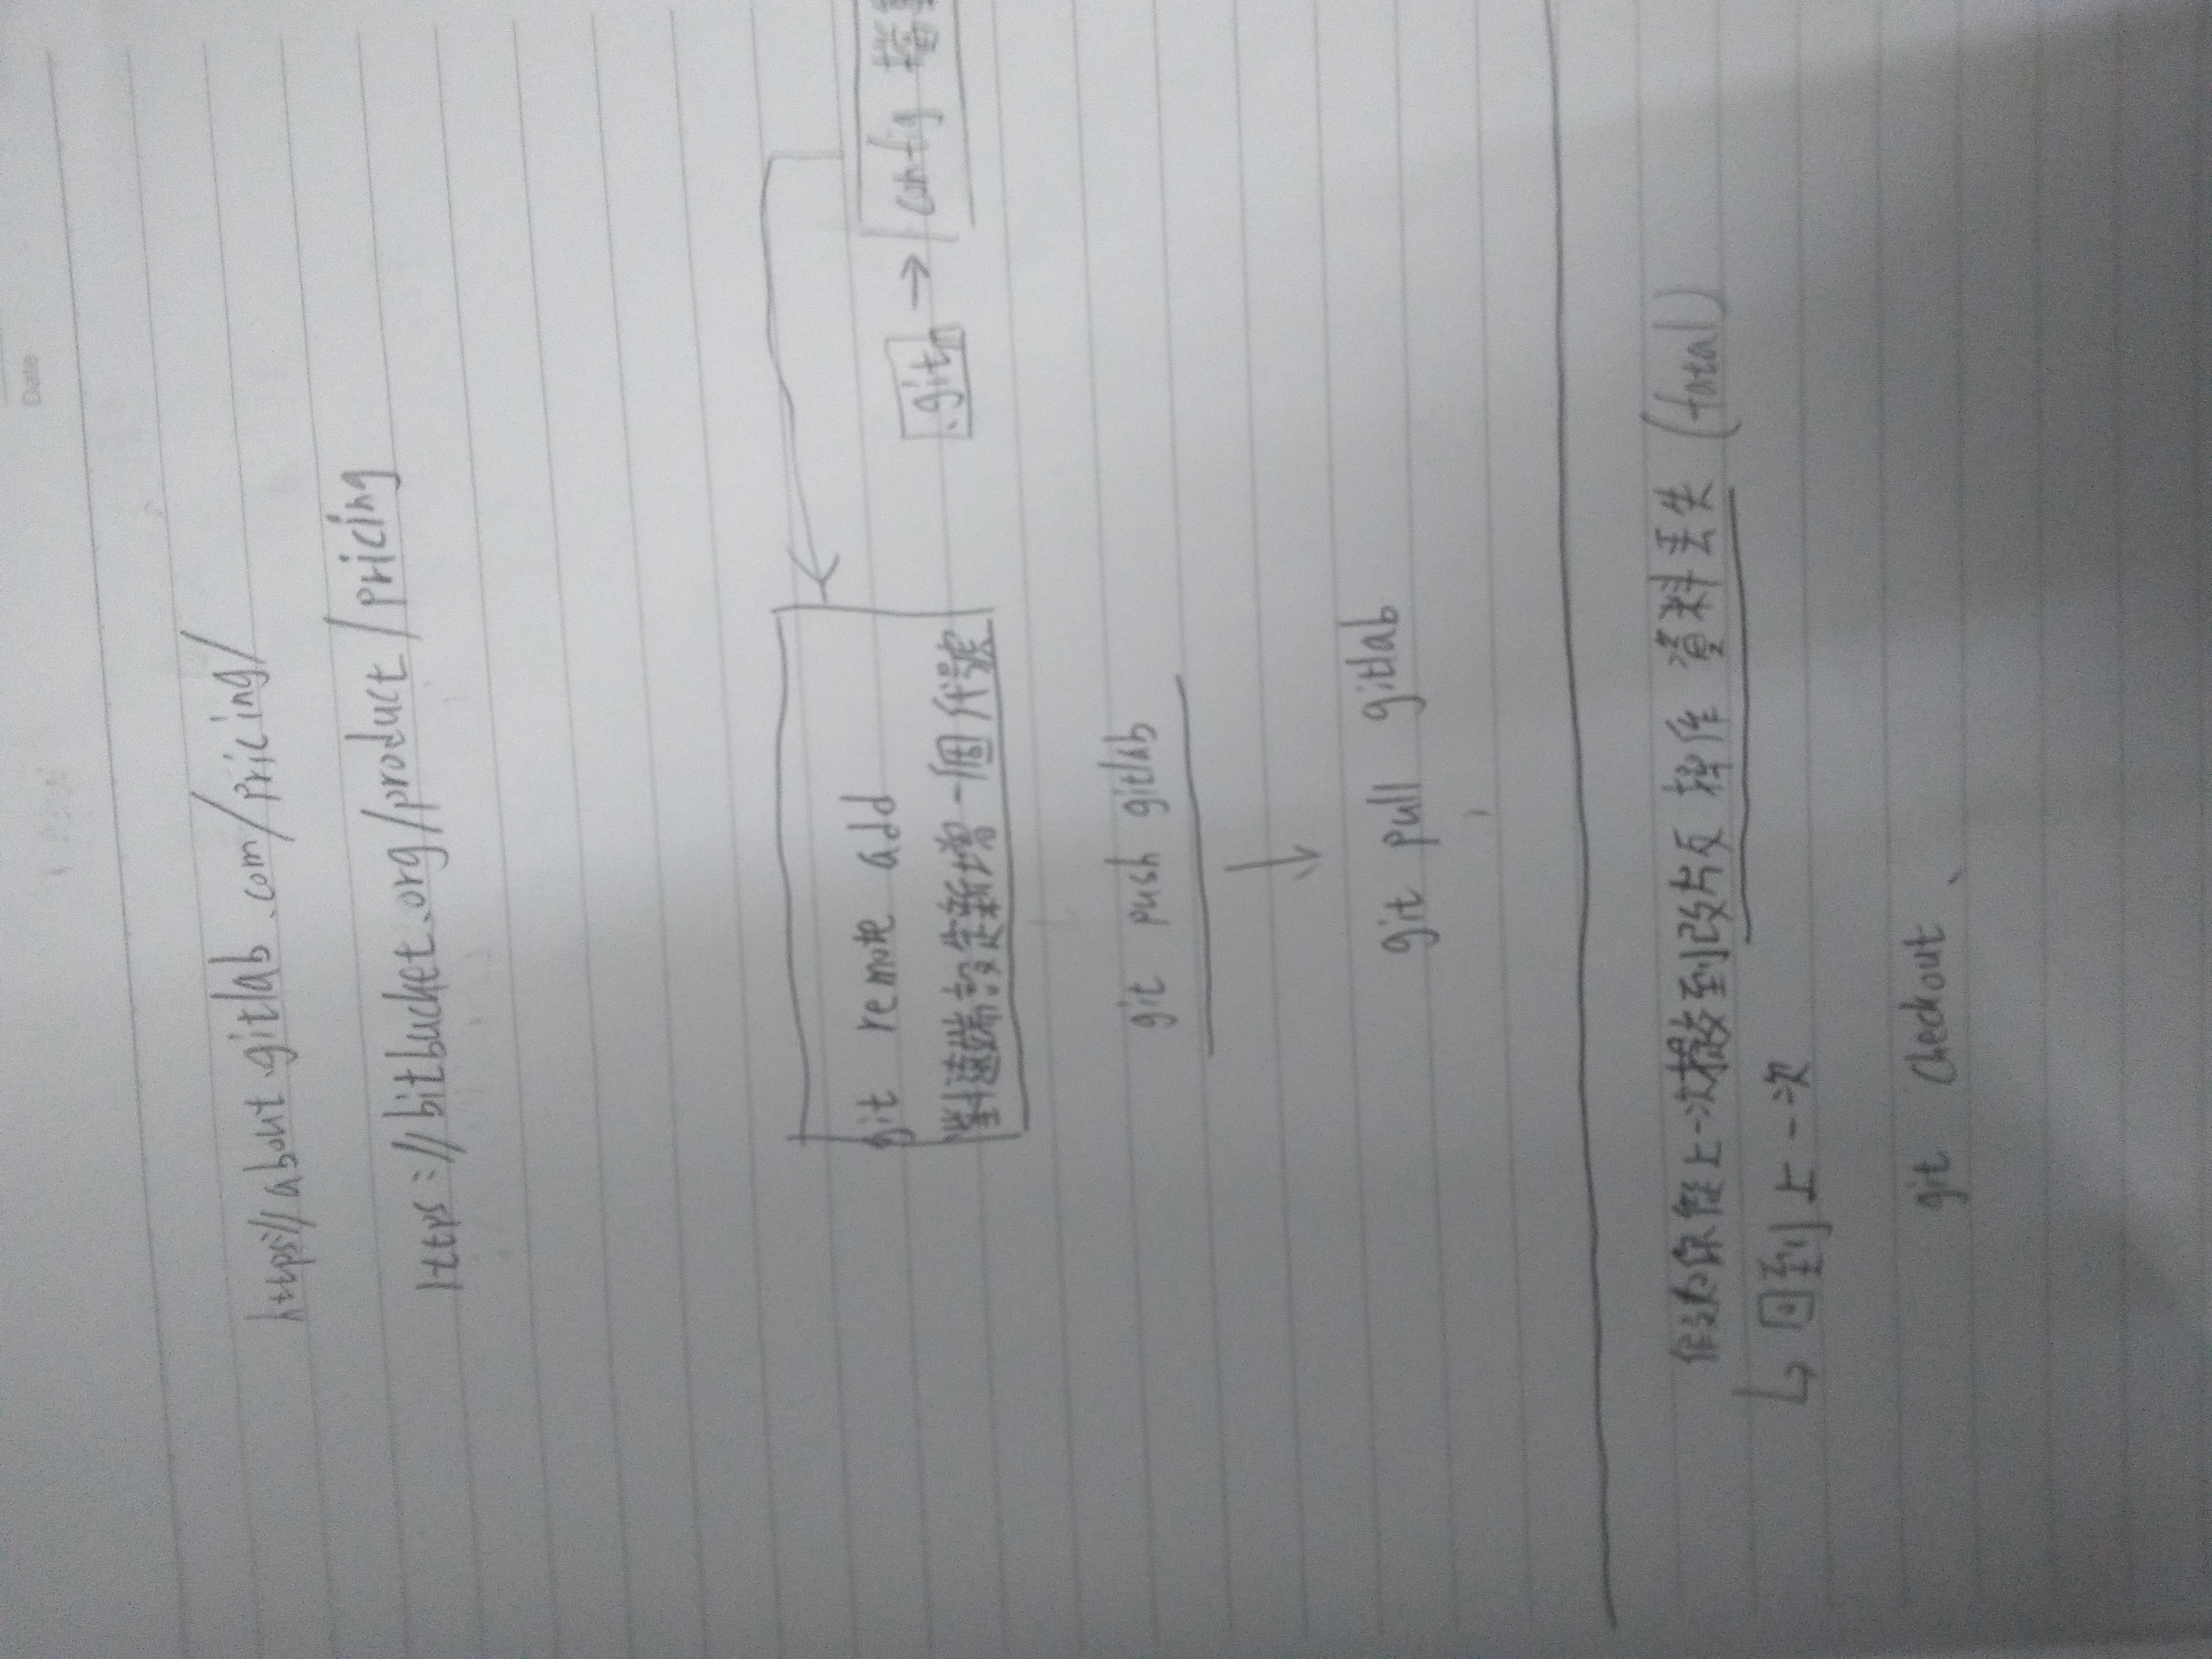 Date
https://about.gitlab.com/pricing/
https://bitbucket.org/product/pricing
git remote add
對遠端設定新增一個代號
.git → config 檔
git push gitlab
↓
git pull gitlab
你從上一次提交到改版 操作 資料丟失 (fatal)
↳ 回到上一次
git checkout